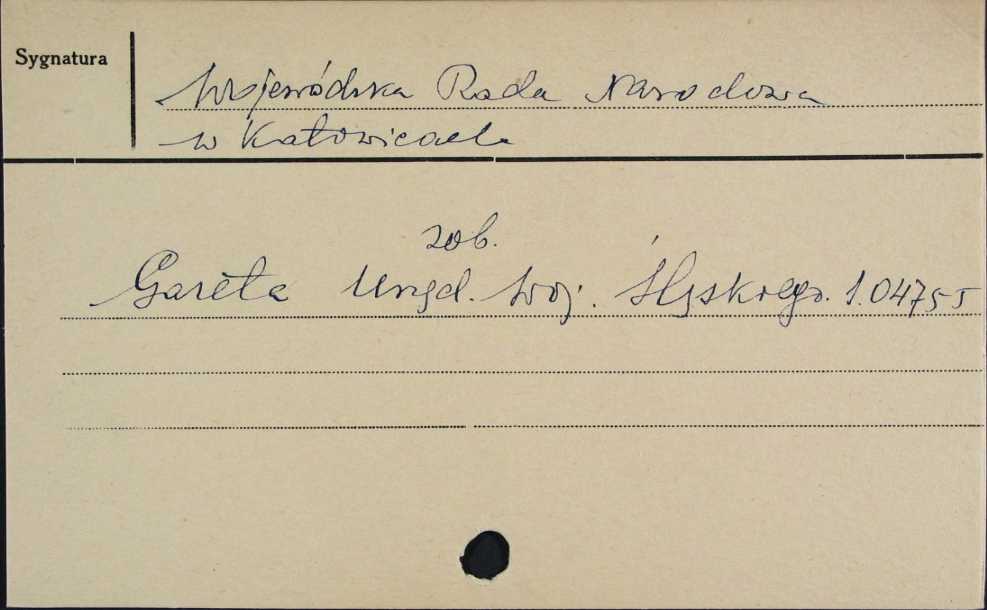 Sygnatura
Wojewódzka Rada Narodowa
w Katowicach
zob.
Gazeta Urzęd. Woj. Śląskiego. 1.04755